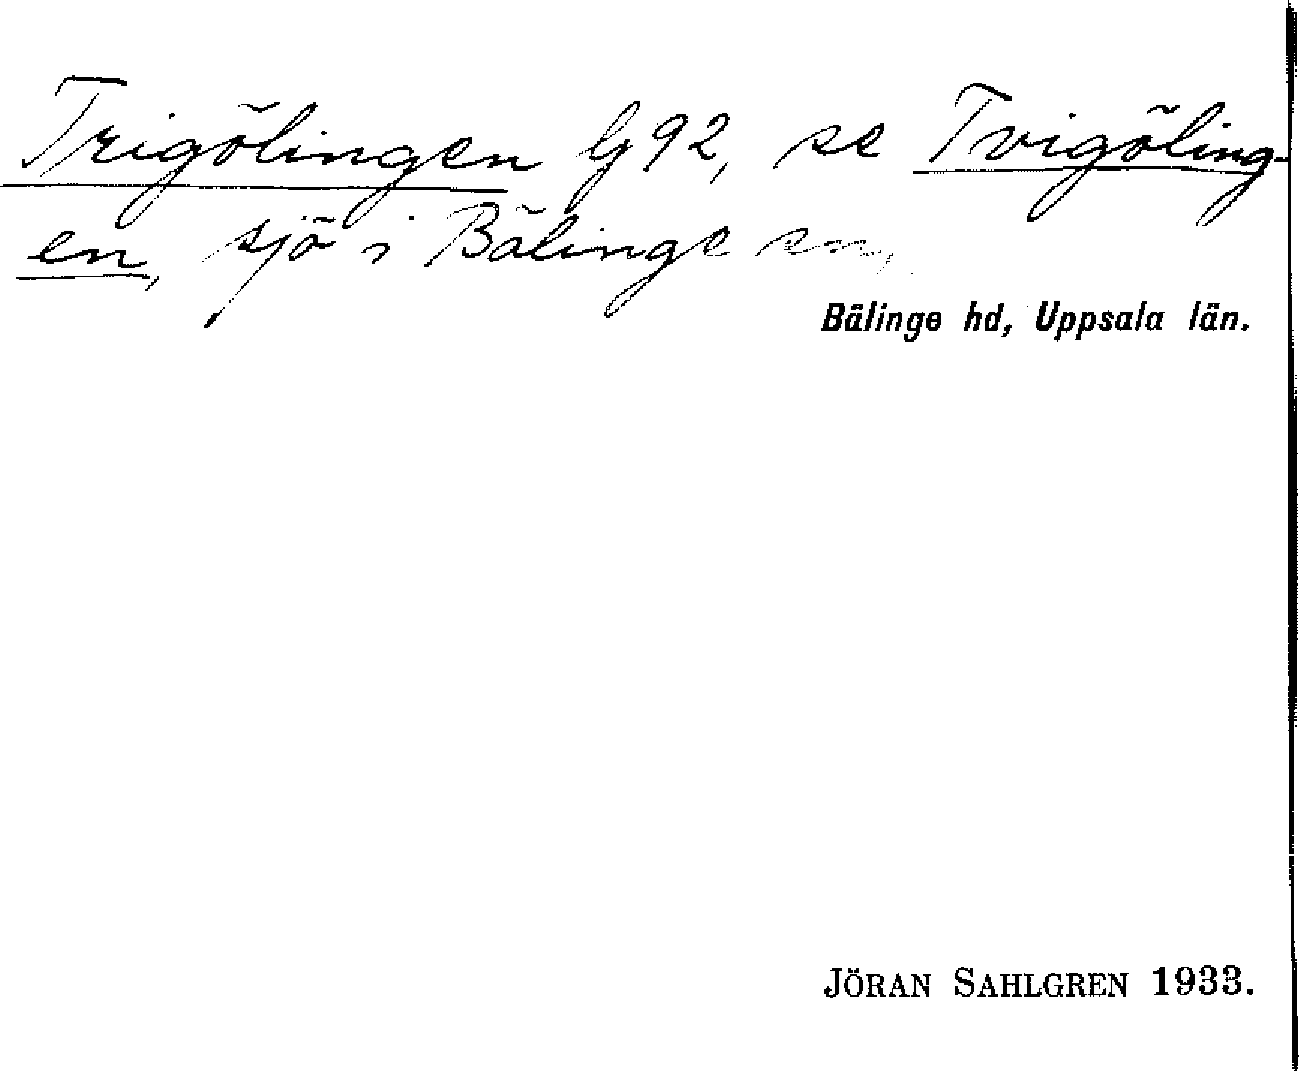 Trigölingen G92, se Tvigöling-
en, sjö i Bälinge sn,
Bälinge hd, Uppsala län.
JÖRAN SAHLGREN 1933.